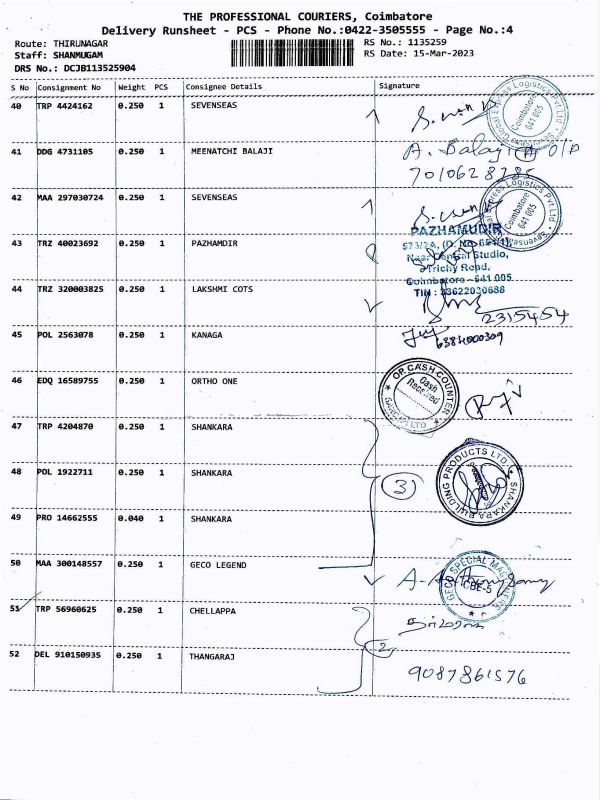 THE PROFESSIONAL COURIERS, Coimbatore
Delivery Runsheet - PCS - Phone No.:0422-3505555 - Page No.:4
Route: THIRUNAGAR RS No.: 1135259
Staff: SHANMUGAM RS Date: 15-Mar-2023
DRS No.: DCJB113525904
S No Consignment No Weight PCS Consignee Details Signature
40 TRP 4424162 0.250 1 SEVENSEAS
Coimbatore
641 005
41 DDG 4731105 0.250 1 MEENATCHI BALAJI A. Balaji
42 MAA 297030724 0.250 1 SEVENSEAS
Coimbatore
641 005
PAZHAMUDIR
43 TRZ 40023692 0.250 1 PAZHAMDIR
Trichy Road,
Coimbatore - 641 005
44 TRZ 320003825 0.250 1 LAKSHMI COTS
TIN : 33622030688
2315454
45 POL 2563078 0.250 1 KANAGA
6384000309
46 EDQ 16589755 0.250 1 ORTHO ONE
OP CASH COUNTER
Cash
Received
47 TRP 4204870 0.250 1 SHANKARA
48 POL 1922711 0.250 1 SHANKARA
3
SHANKARA BUILDING PRODUCTS LTD.
49 PRO 14662555 0.040 1 SHANKARA
50 MAA 300148557 0.250 1 GECO LEGEND
CBE-5
51 TRP 56960625 0.250 1 CHELLAPPA
2
52 DEL 910150935 0.250 1 THANGARAJ
9087861576